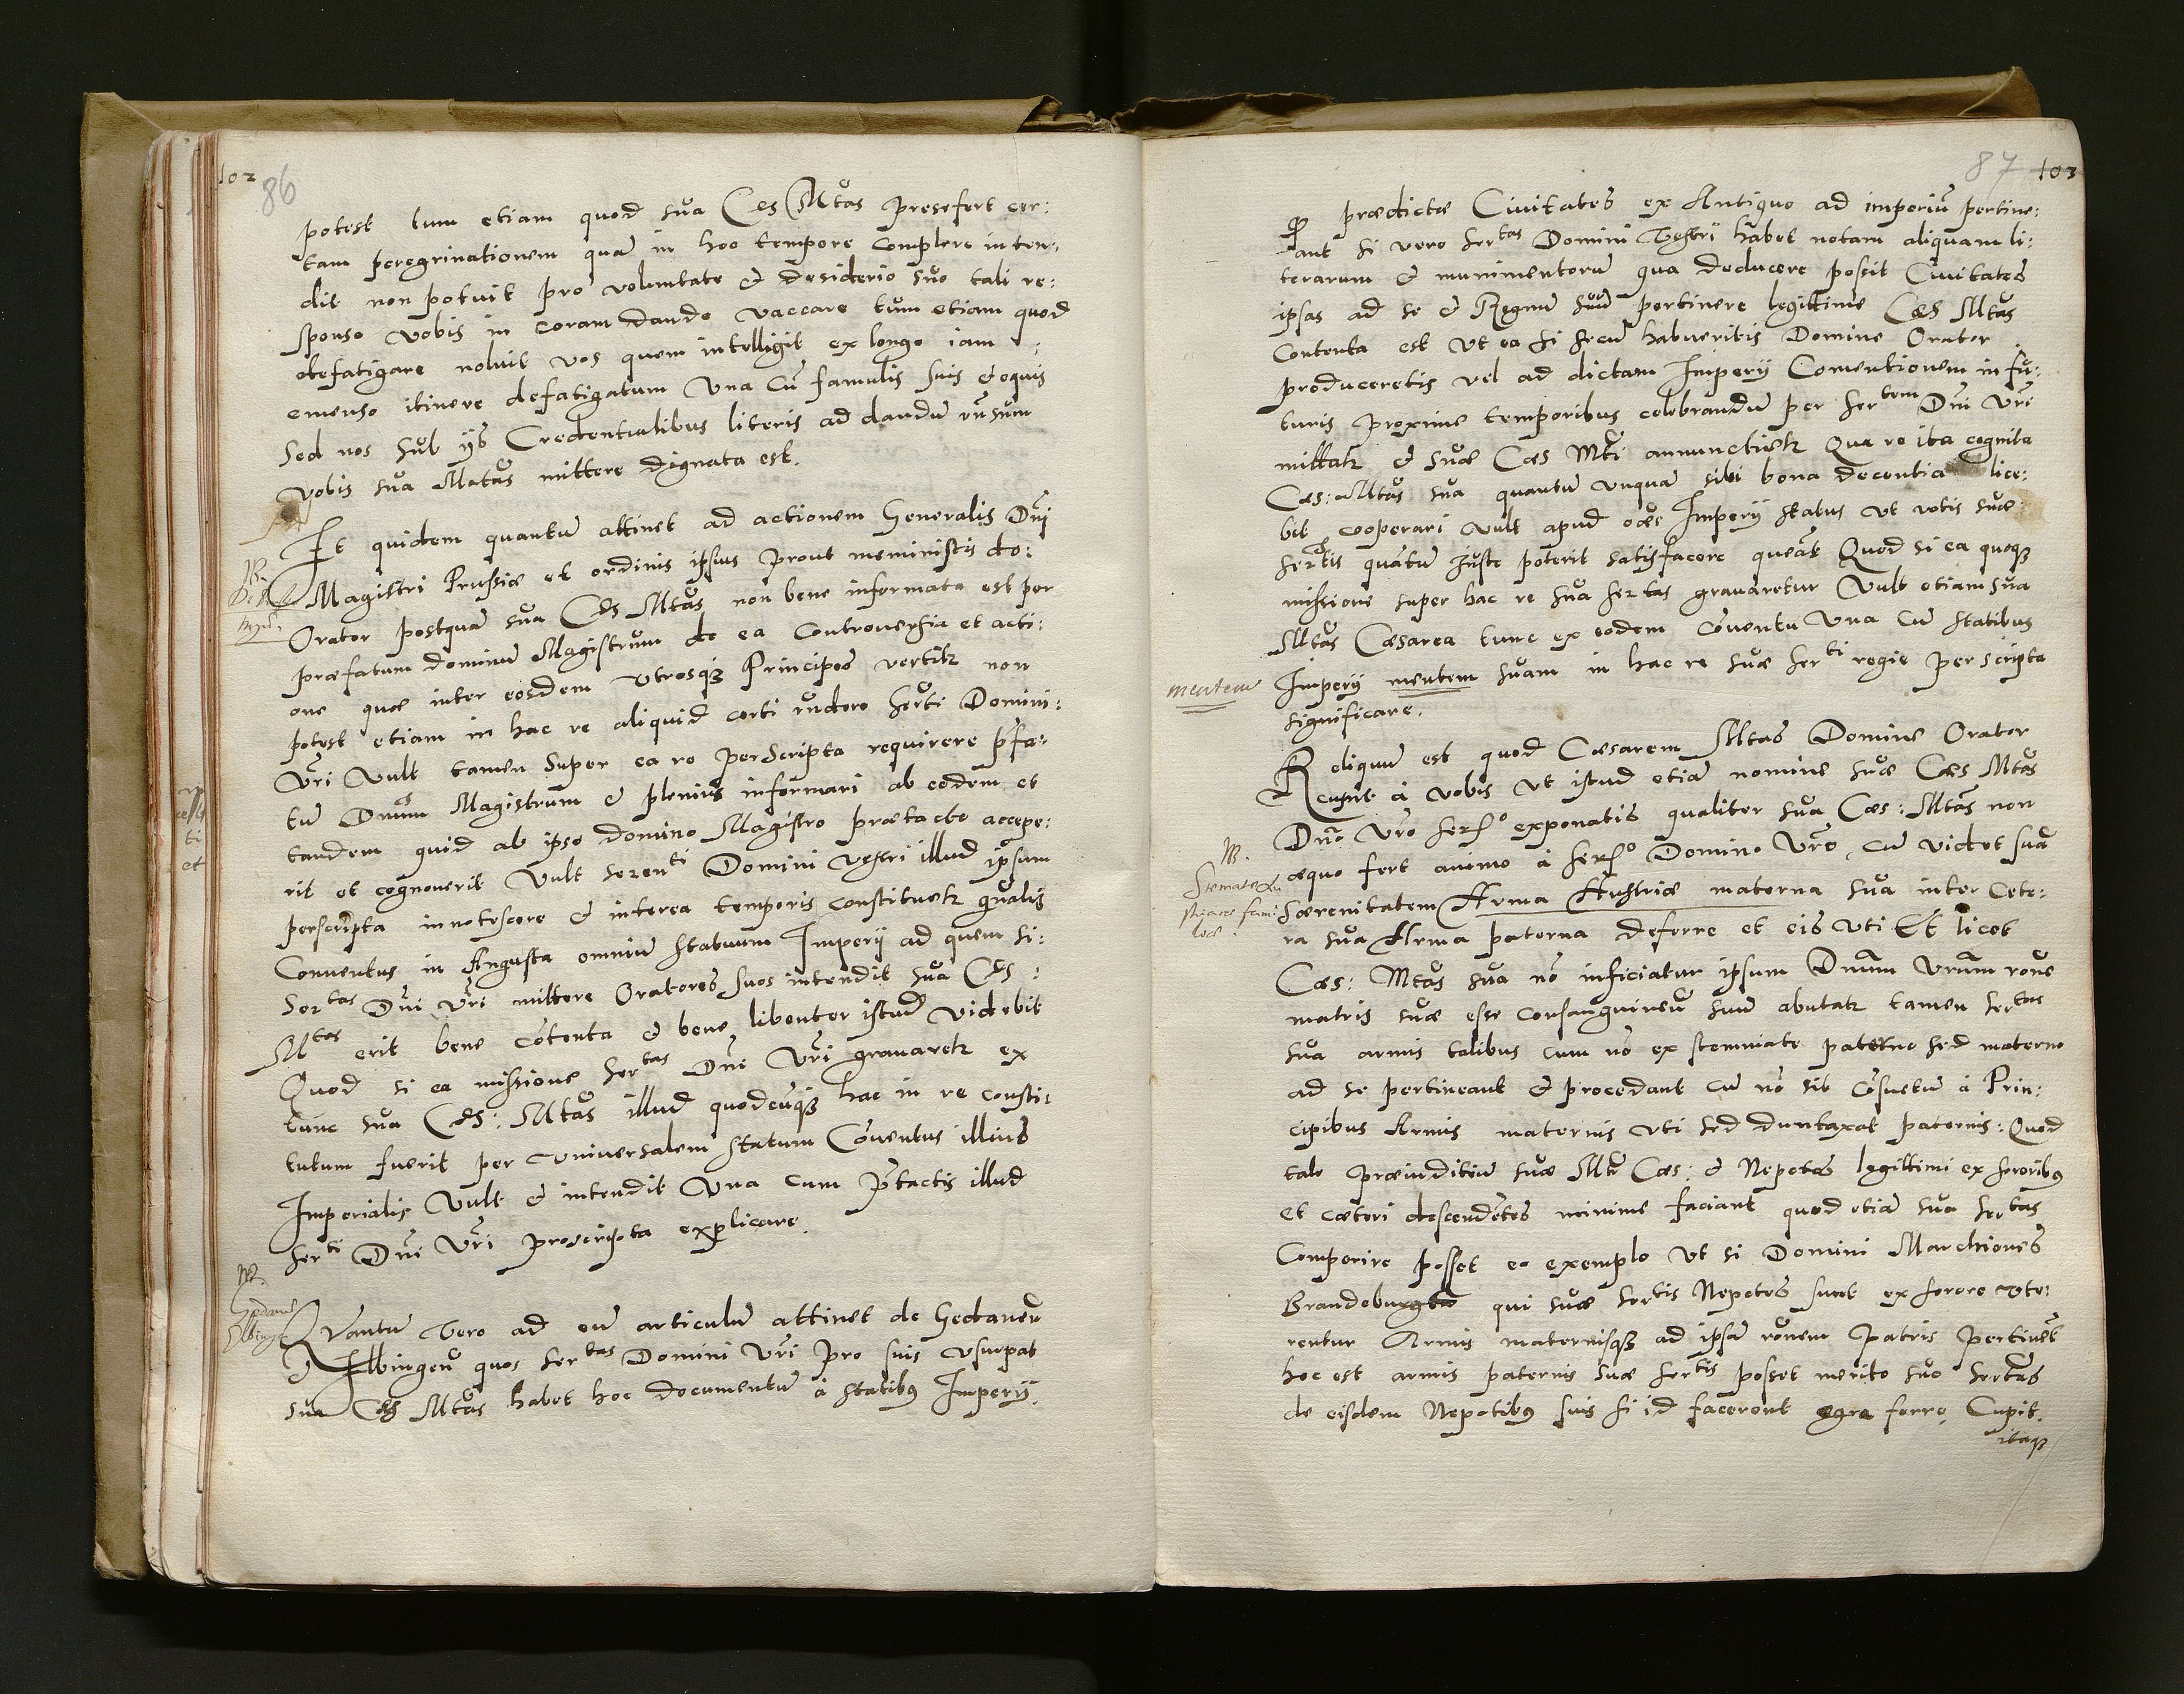 102
86
potest tum etiam quod sua Ces Mtas presefert cer:
tam peregrinationem quã in hoc tempore complere inten:
dit non potuit pro voluntate & desiderio suo tali re:
sponso vobis in coram dando vaccare tum etiam quod
defatigare noluit vos quem intelligit ex longo iam
emenso itinere defatigatum una cũ famulis suis & equis
Sed nos sub ijs Credentialibus literis ad dandũ rũsum
vobis sua Matas mittere dignata est.
Et quidem quantũ attinet ad actionem Generalis Dni
Magistri Prussiæ et ordinis ipsius prout meministis do:
Orator postquã sua Cæs Mtas non bene informata est per
præfatum dominũ Magistrum de ea controuersia et acti:
one quæ inter eosdem utrosq3 Principes vertitr non
potest etiam in hac re aliquid certi rñdere Serti Domini
Vri Vult tamen super ea re perscripta requirere pfa:
tũ Dnum Magistrum & plenius informari ab eodem et
tandem quid ab ipso domino Magistro prætacto accepe:
rit et cognouerit Vult serenti Domini vestri illud ipsum
perscripta innotescere & interea temporis constituetr qualis
Conuentus in Augusta omniũ statuum Imperij ad quem si:
Sertas Dni Vri mittere Oratores suos intendit sua Cæs:
Mtas erit bene cõtenta & bene libenter istud videbit
Quod si ea missione Sertas Dni Vri grauaretr ex
tunc sua Cæs: Mtas illud quodcũq3 hac in re consti:
tutum fuerit per universalem statum Cõuentus illius
Imperialis Vult & intendit Una cum ptactis illud
Serti Dni Vri proscripta explicare.
NB.
Gedanũ
Elbingẽ
Quantũ Vero ad eũ articulũ attinet de Gedaneñ
& Elbingeñ quos Sertas Domini Vri pro suis usurpat
sua Cæs Mtas habet hoc documentũ à statibus Imperij
87 103
prædictæ Ciuitates ex Antiquo ad imperiũ pertine:
ant si vero Sertas Domini Vestri habet notam aliquam li:
terarum & munimentorũ qua deducere possit Ciuitates
ipsas ad se & Regnũ suũ pertinere legittime Cæs Mtas
Contenta est ut ea si secũ habueritis Domine Orator
produceretis vel ad dictam Imperij Conuentionem in fu:
turis proxime temporibus celebrandũ per Sertem Dni Vri
mittatr & suæ Cæs Mti annuncietr Qua re ita cognita
Cæs: Mtas sua quantũ unquã sibi bona decentia lice:
bit cooperari vult apud oẽs Imperij status ut votis suæ
Sertis quãtum Juste poterit satisfacere queãt Quod si ea quoq3
missione super hac re sua Sertas grauaretur Vult etiam sua
Mtas Cæsarea tunc ex eodem Cõuentu Una cũ statibus
Imperij mentem suam in hac re suæ Serti regie perscripta
significare.
mentem
Reliquũ est quod Cæsarem Mtas Domine Orator
cupit à vobis ut istud etiã nomine suæ Cæs Mtas
Dno Vro Sermo exponatis qualiter sua Cæs: Mtas non
æquo fert animo à Sermo Domino Vro, cũ videt suã
Særenitatem Arma Austriæ materna sua inter cete:
ra sua Arma paterna deferre et eis uti Et licet
NB.
Cæs: Mtas sua nõ inficiatur ipsum Dnum Vrum rone
matris suæ esse consanguineũ suũ abutatr tamen Sertas
sua armis talibus cum nõ ex stemmate paterno sed materno
ad se pertineant & procedant cũ nõ sit cõsuetũ à Prin:
cipibus Armis maternis uti sed duntaxat paternis: Quod
tale præiuditiũ suæ Mti Cæs: & Nepotes legittimi ex sororibus
et cæteri descendẽtes minime faciant quod etiã sua Sertas
Comperire posset eo exemplo Ut si Domini Marchiones
Brandeburgtã qui suæ Sertis Nepotes sunt ex sorore ute:
rentur Armis maternisq3 ad ipsã rõnem patris pertinẽt
hoc est armis paternis suæ Sertis posset merito suo Sertas
de eisdem Nepotibus suis si id facerent egre ferre. Cupit
itaq3